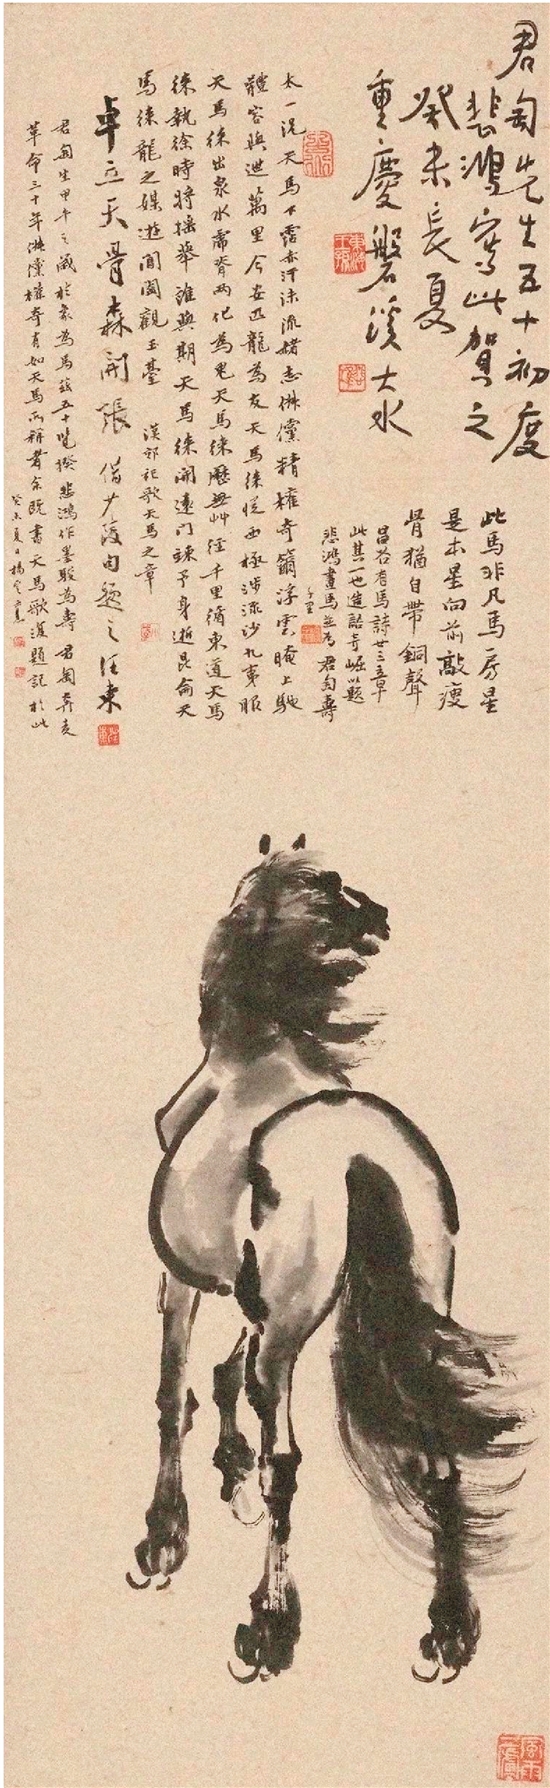 君匋先生五十初度
悲鴻寫此賀之
癸未長夏
重慶磐溪大水
此馬非凡馬房星
是本星向前敲瘦
骨猶自帶銅聲
昌谷有馬詩廿三章
此其一也造語奇崛以題
悲鴻畫馬並為君匋壽
太一況天馬下霑赤汗沫流赭志俶儻精權奇籋浮雲晻上馳
體容與迣萬里今安匹龍為友天馬徠從西極涉流沙九夷服
天馬徠出泉水虎脊兩化為鬼天馬徠歷無艸徑千里循東道天馬
徠執徐時將搖舉誰與期天馬徠開遠門竦予身逝昆侖天
馬徠龍之媒遊閶闔觀玉臺 漢郊祀歌天馬之章
卓立天骨森開張 借少陵句題之 汪東
君匋生甲午之歲於象為馬茲五十覽揆悲鴻作墨駿為壽君匋奔走
革命三十年俶儻權奇有如天馬所稱者余既書天馬歌復題記於此
癸未夏日